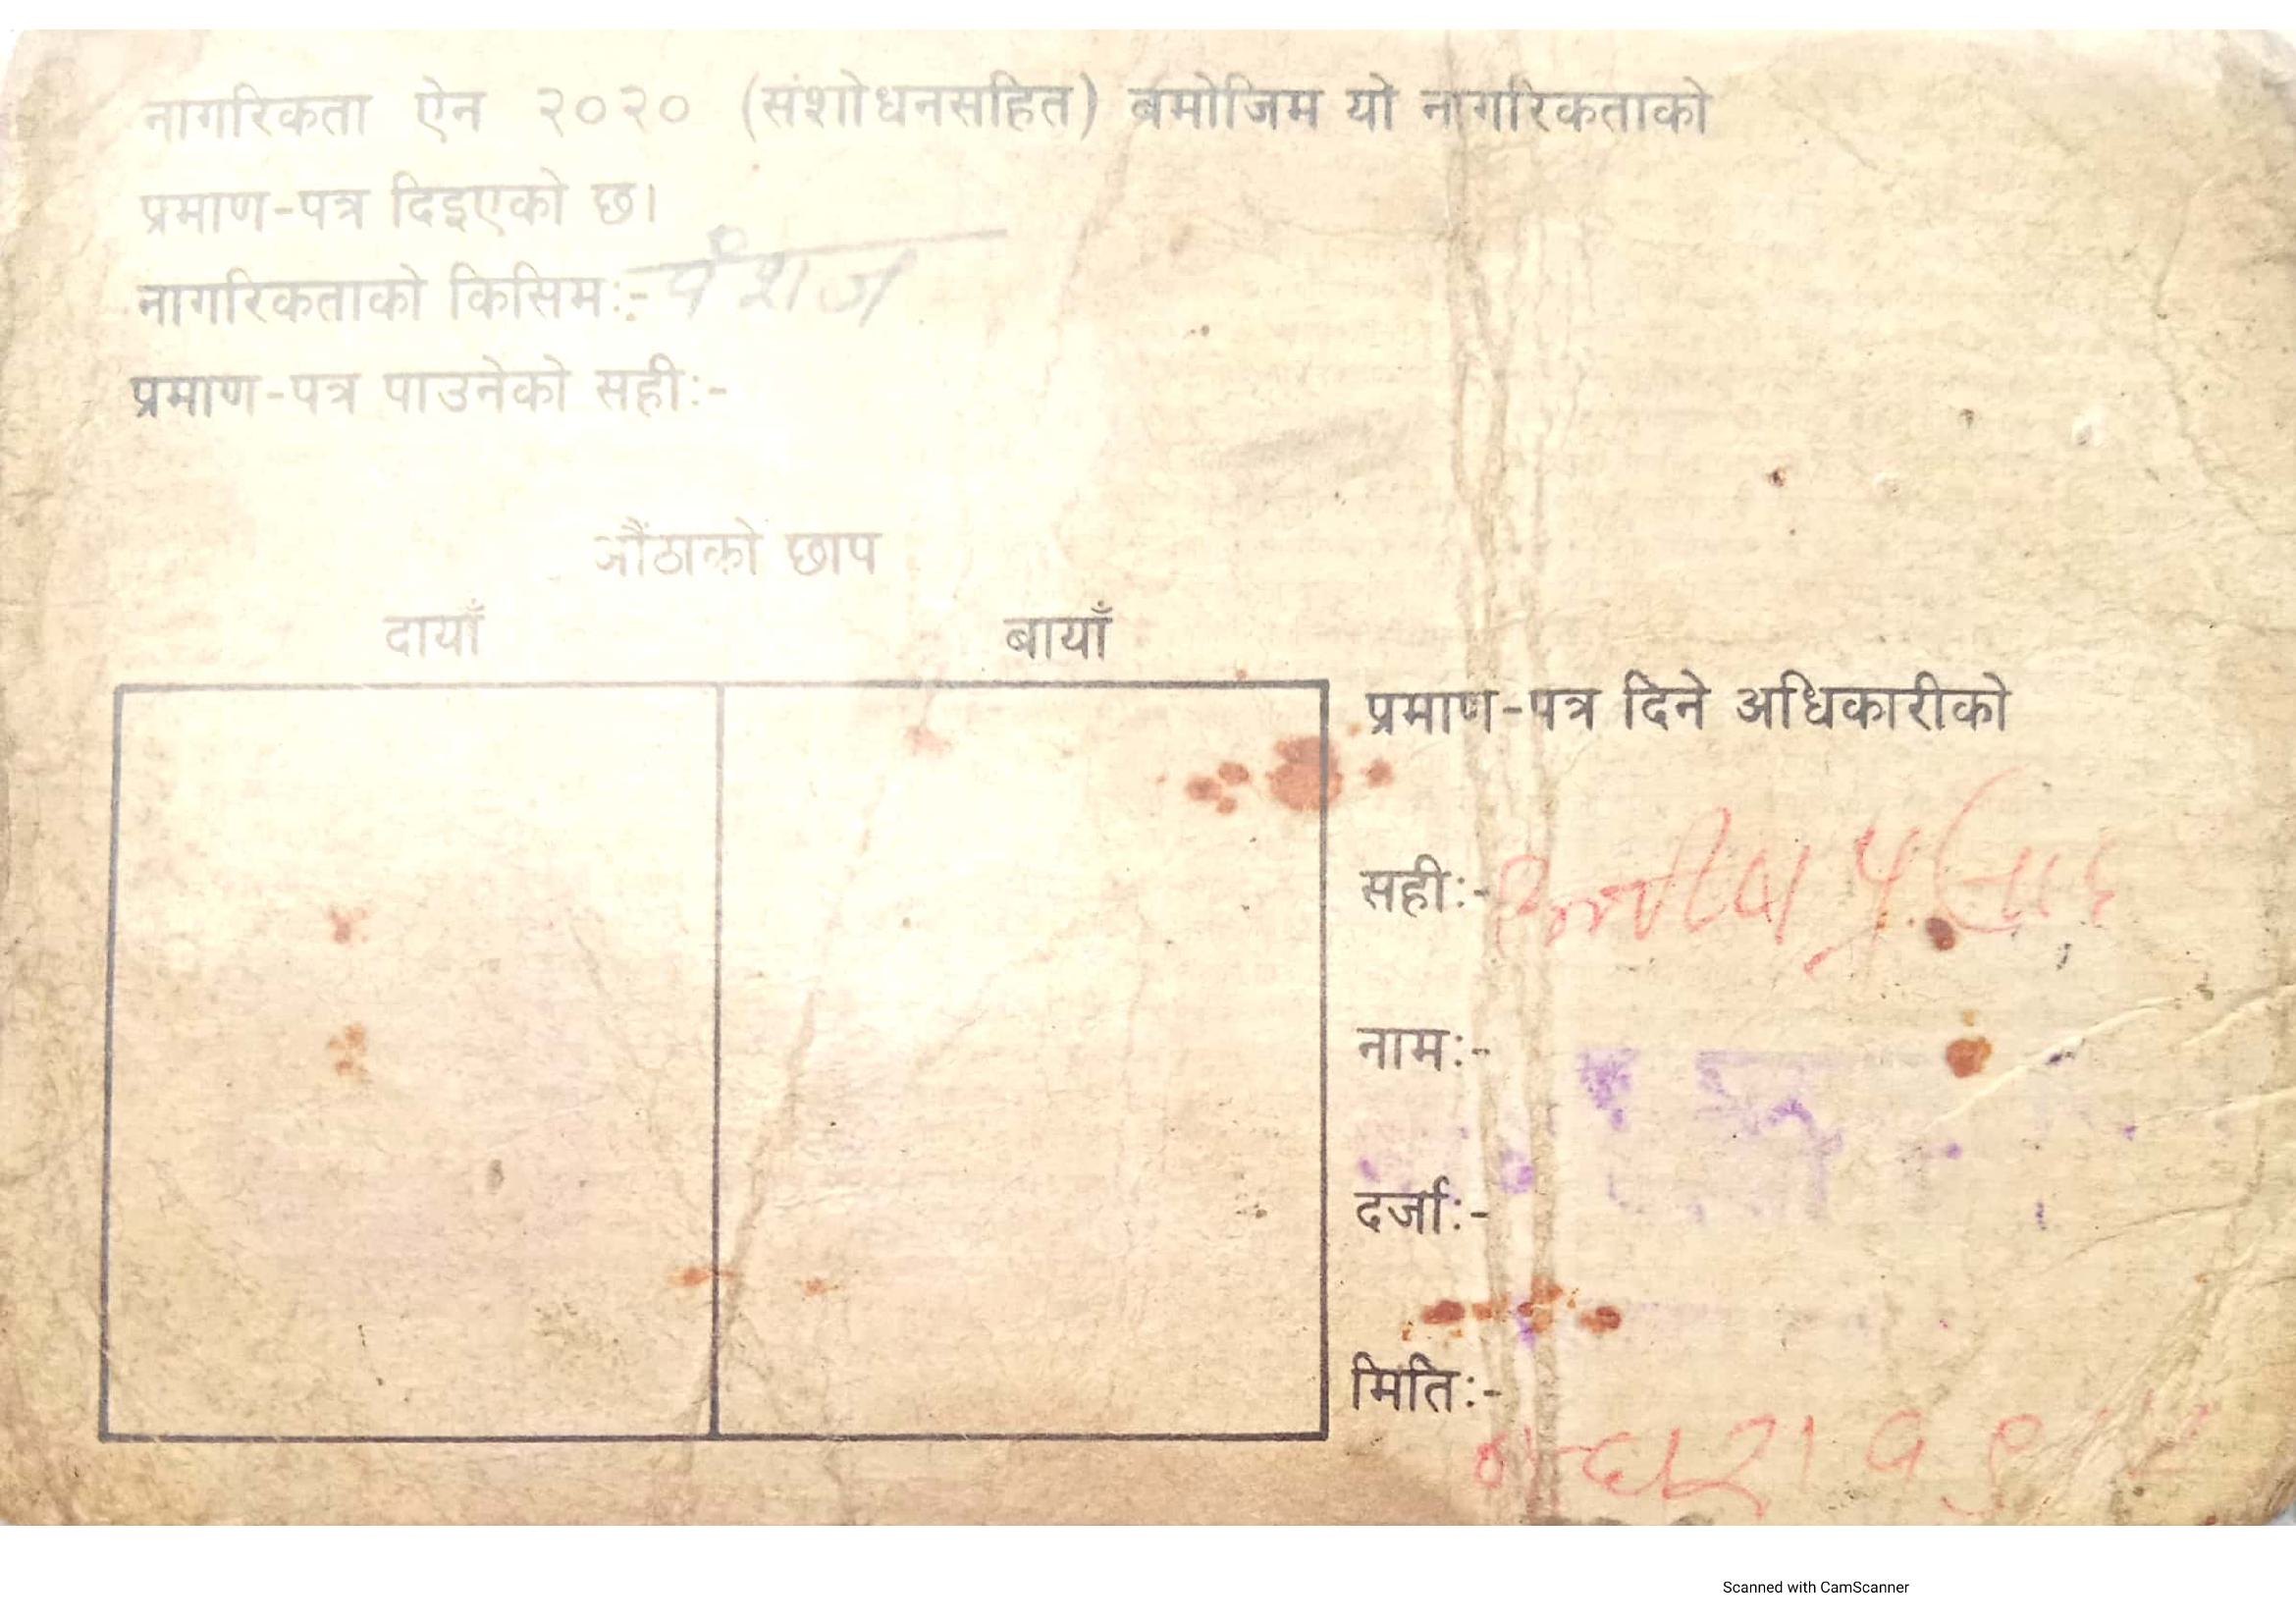 नागरिकता ऐन २०२० (संशोधनसहित) बमोजिम यो नागरिकताको
प्रमाण-पत्र दिइएको छ।
नागरिकताको किसिम:- वंशज
प्रमाण-पत्र पाउनेको सही:-
औंठाको छाप
दायाँ बायाँ
प्रमाण-पत्र दिने अधिकारीको
सही:-
नाम:-
दर्जा:-
मिति:-
Scanned with CamScanner